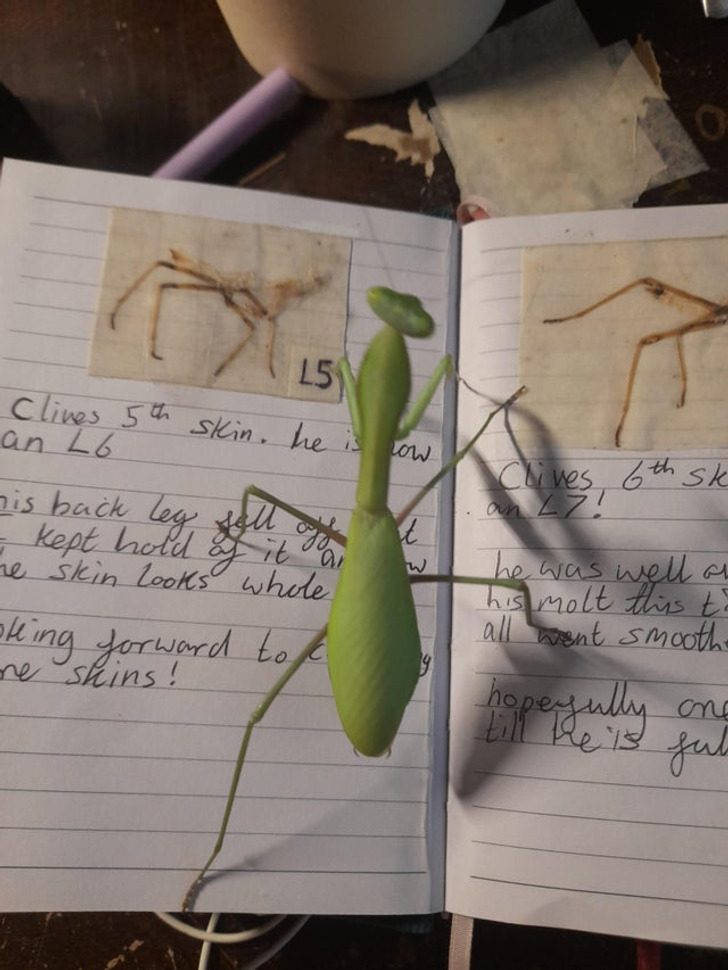 L5
Clives 5th skin. he is now
an L6
his back leg fell off
kept hold of it
he skin looks whole
king forward to
skins!
Clives 6th sk
an L7!
he was well
his molt this t
all went smooth
hopefully one
till he is ful